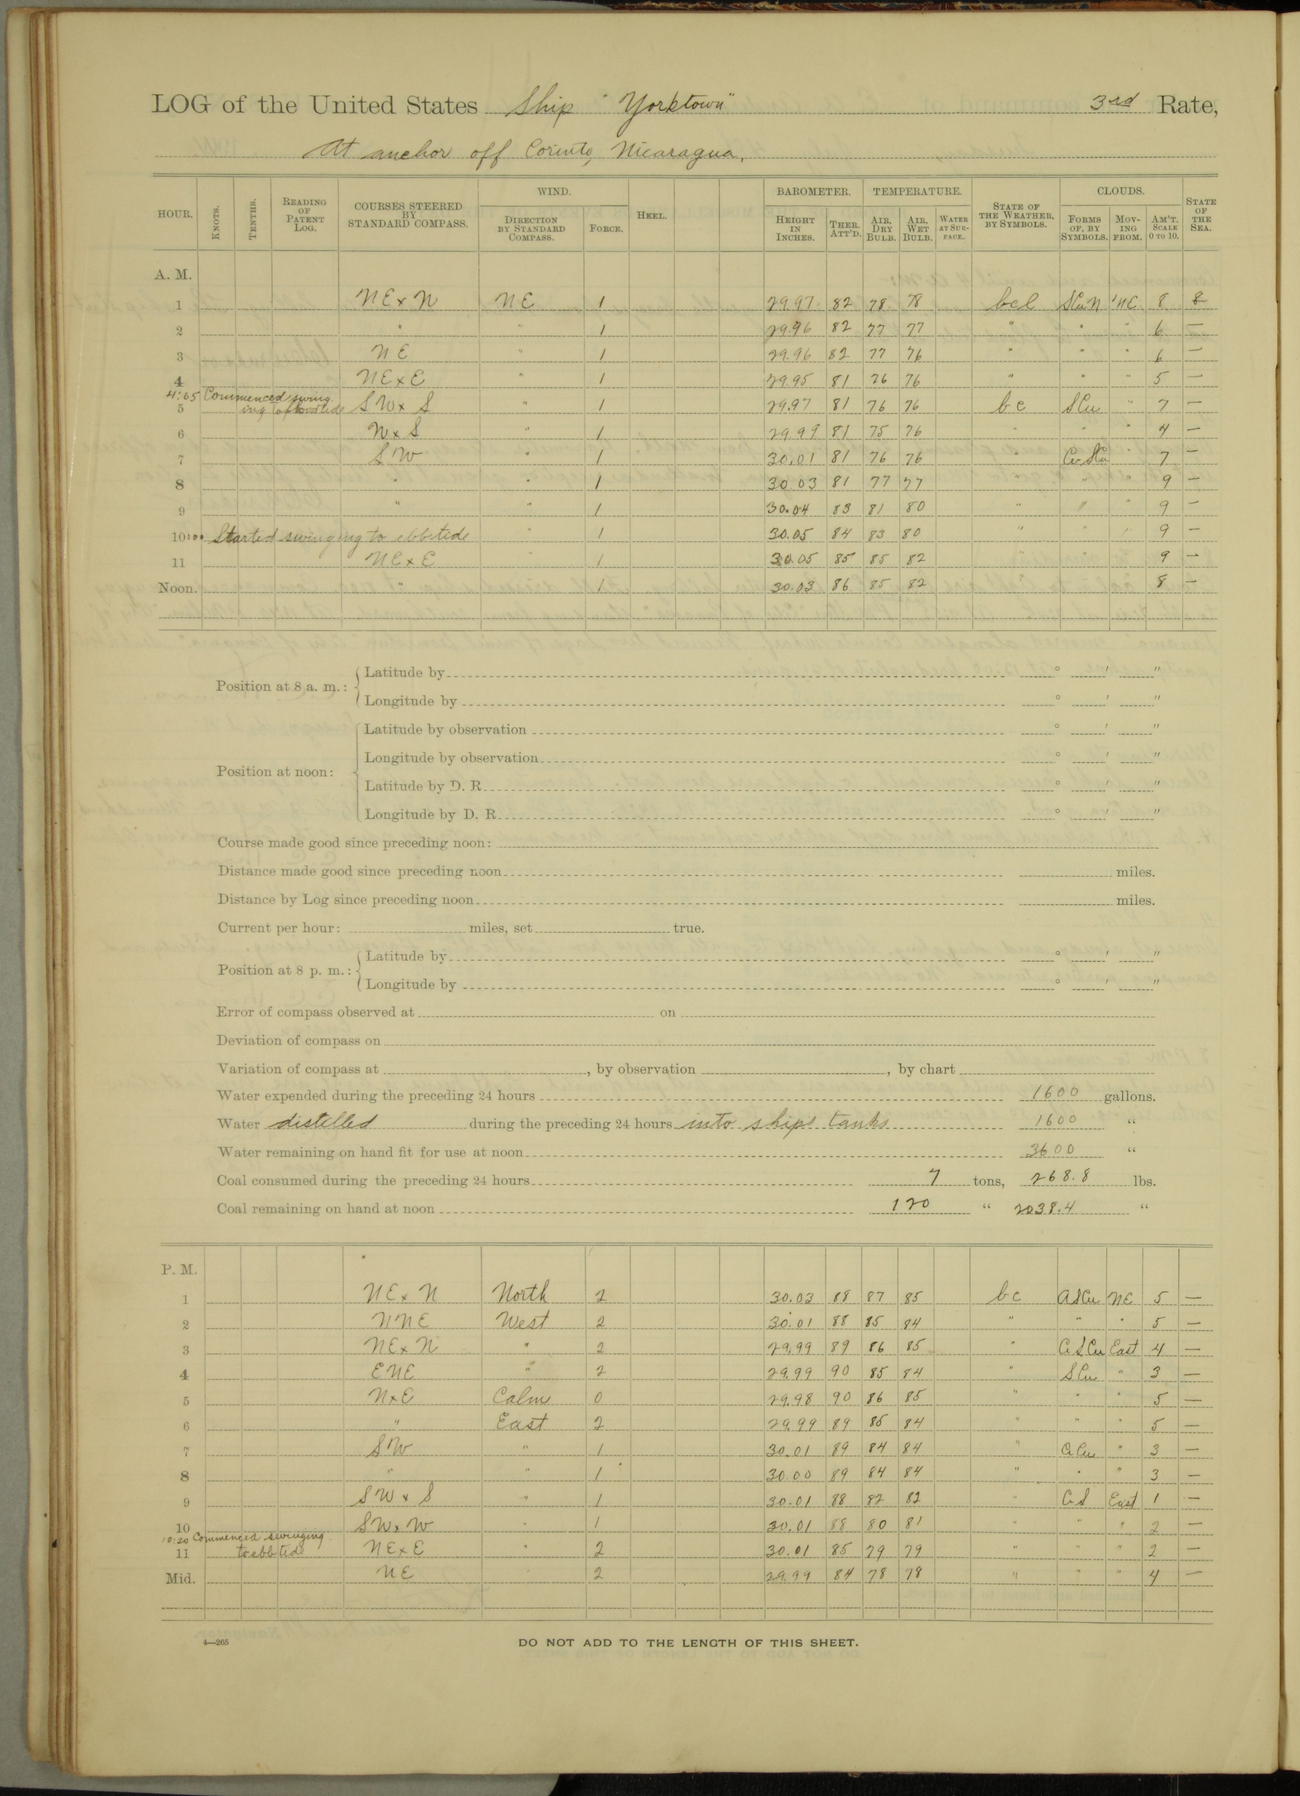 LOG of the United States Ship "Yorktown" 3rd Rate,
At anchor off Corinto, Nicaragua,
HOUR. KNOTS. TENTHS. READING OF PATENT LOG. COURSES STEERED BY STANDARD COMPASS. WIND. DIRECTION BY STANDARD COMPASS. FORCE. HEEL. BAROMETER. HEIGHT IN INCHES. THER. ATT'D. TEMPERATURE. AIR, DRY BULB. AIR, WET BULB. WATER AT SURFACE. STATE OF THE WEATHER, BY SYMBOLS. CLOUDS. FORMS OF, BY SYMBOLS. MOVING FROM. AM'T. SCALE 0 TO 10. STATE OF THE SEA.
A. M.
1 NExN NE 1 29.97 82 78 78 bcl SCuN NE 8
2 " " 1 29.96 82 77 77 " " " 6 —
3 NE " 1 29.96 82 77 76 " " " 6 —
4 NExE " 1 29.95 81 76 76 " " " 5 —
4:05 Commenced swing
5 SWxS " 1 29.97 81 76 76 bc SCu " 7 —
6 WxS " 1 29.99 81 75 76 " " " 4 —
7 SW " 1 30.01 81 76 76 " " 7 —
8 " " 1 30.03 81 77 77 " " " 9 —
9 " " 1 30.04 83 81 80 " " " 9 —
10 Started swinging to ebbtide " 1 30.05 84 83 80 " " " 9 —
11 NExE " 1 30.05 85 85 82 " " " 9 —
Noon. " " 1 30.03 86 85 82 " " " 8 —
Position at 8 a. m.: Latitude by ° ′ ″
Longitude by ° ′ ″
Position at noon: Latitude by observation ° ′ ″
Longitude by observation ° ′ ″
Latitude by D. R. ° ′ ″
Longitude by D. R. ° ′ ″
Course made good since preceding noon:
Distance made good since preceding noon miles.
Distance by Log since preceding noon miles.
Current per hour: miles, set true.
Position at 8 p. m.: Latitude by ° ′ ″
Longitude by ° ′ ″
Error of compass observed at on
Deviation of compass on
Variation of compass at , by observation , by chart
Water expended during the preceding 24 hours 1600 gallons.
Water distilled during the preceding 24 hours into ships tanks 1600 "
Water remaining on hand fit for use at noon 3600 "
Coal consumed during the preceding 24 hours 7 tons, 268.8 lbs.
Coal remaining on hand at noon 120 " 2038.4 "
P. M.
1 NExN North 2 30.03 88 87 85 bc NE 5 —
2 NNE West 2 30.01 88 85 84 " " " 5 —
3 NExN " 2 29.99 89 86 85 " East 4 —
4 ENE " 2 29.99 90 85 84 " SCu " 3 —
5 NxE Calm 0 29.98 90 86 85 " " " 5 —
6 " East 2 29.99 89 85 84 " " " 5 —
7 SW " 1 30.01 89 84 84 " " 3 —
8 " " 1 30.00 89 84 84 " " " 3 —
9 SWxS " 1 30.01 88 82 82 " East 1 —
10 SWxW " 1 30.01 88 80 81 " " " 2 —
10:20 Commenced swinging
11 to ebbtide NExE " 2 30.01 85 79 79 " " " 2 —
Mid. NE " 2 29.99 84 78 78 " " " 4 —
4—265 DO NOT ADD TO THE LENGTH OF THIS SHEET.